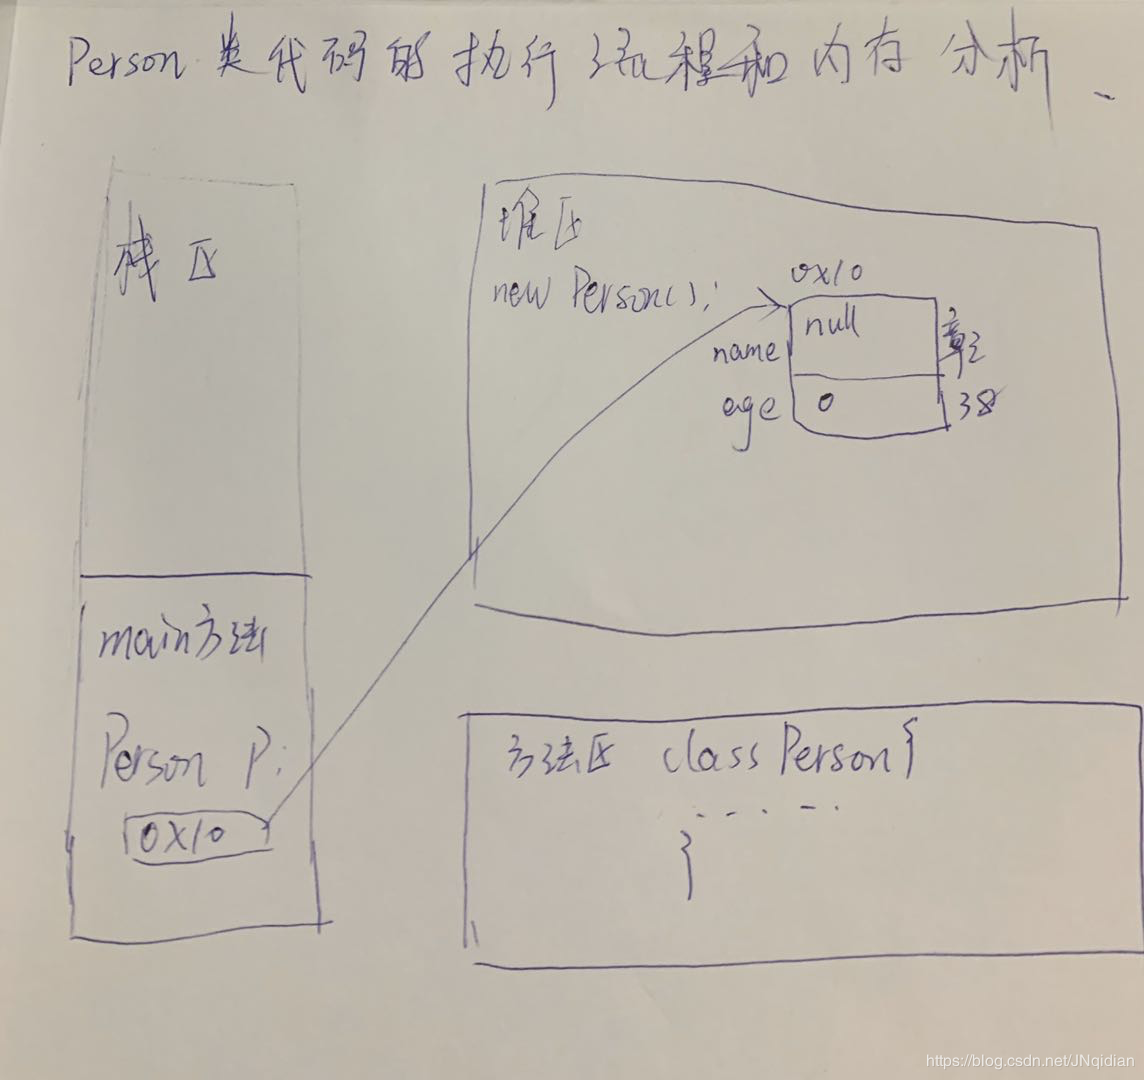 Person 类代码的执行流程和内存分析、
栈区
main方法
Person P;
0X10
堆区
new Person();
0x10
name
null
age
0
38
方法区 class Person{
......
}
https://blog.csdn.net/JNqidian